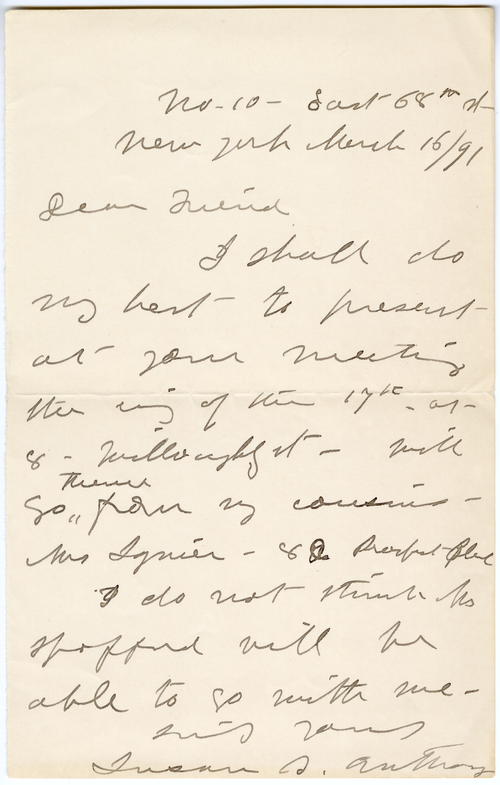 No - 10 - East 68th st -
New York March 16/91
Dear Friend
I shall do
my best - to present -
at your meeting
the evg of the 17th - at -
8 - Willoughby st - will
thence
go " from my cousins -
Mrs - 8 Prospect Place
I do not think Mrs
Spofford will be
able to go with me -
yours
Susan B. Anthony